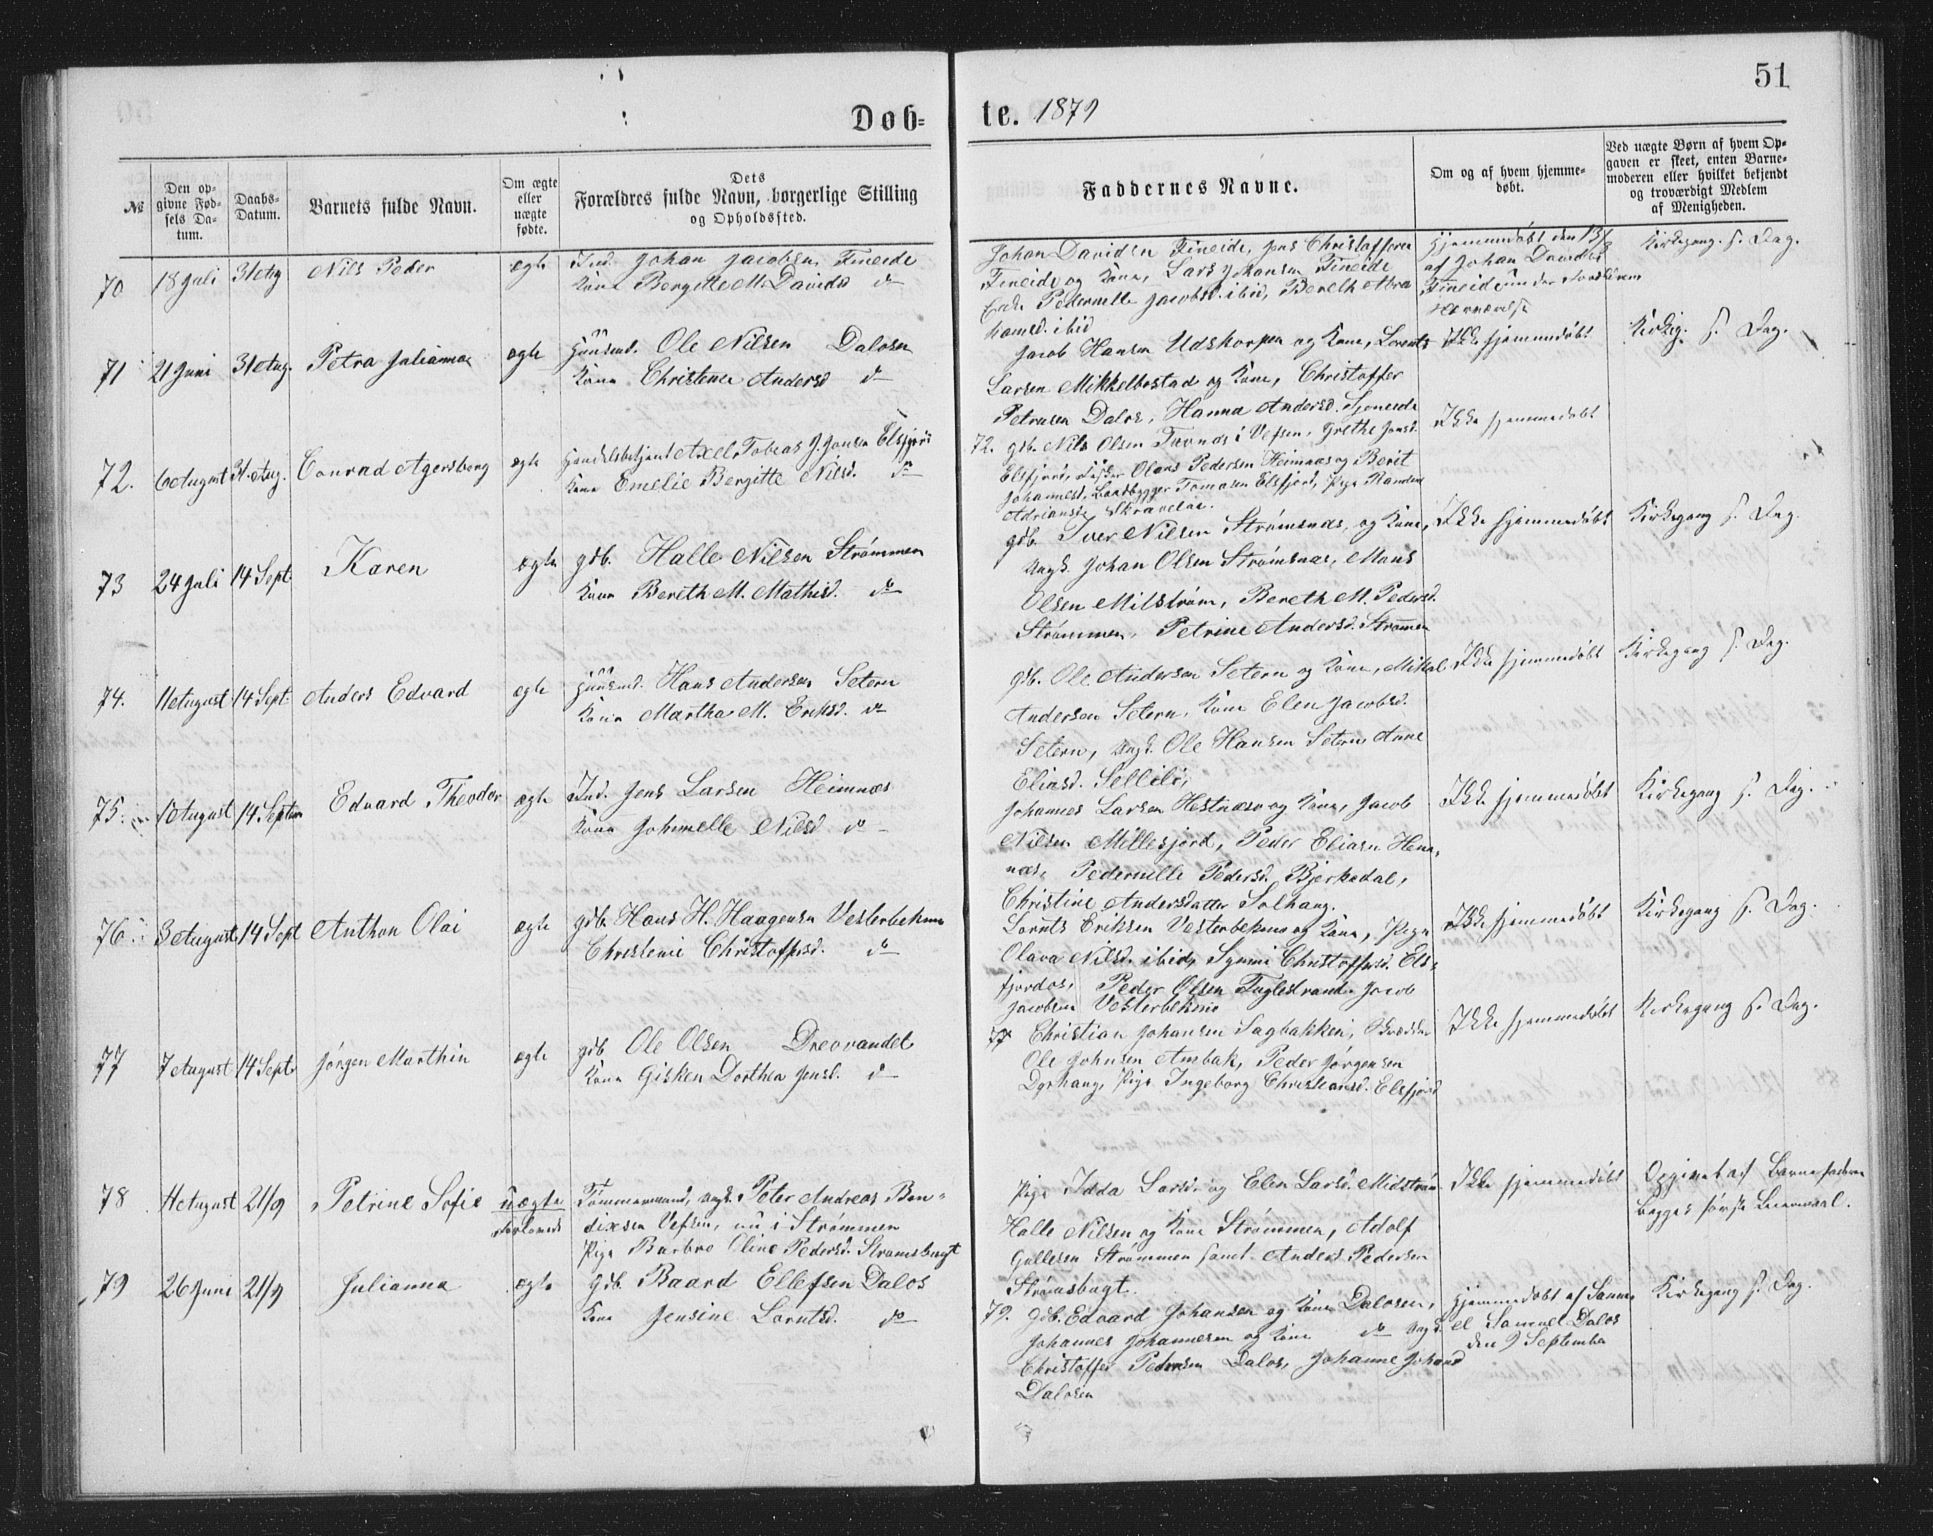 51
Døb=
te. 1879
№
Den opgivne Fødsels Datum.
Daabs-Datum.
Barnets fulde Navn.
Om ægte eller nægte fødte.
Dets
Forældres fulde Navn, borgerlige Stilling
og Opholdssted.
Faddernes Navne.
Om og af hvem hjemmedøbt.
Ved uægte Børn af hvem Opgaven er skeet, enten Barnemoderen eller hvilket bekjendt og troværdigt Medlem af Menigheden.
70 18 Juli 31 Aug Nils Peder ægte Ind. Johan Jacobsen Fineide
Kone Bergitte M. Davidsd do
Johan Davidsen Fineide, Jens Christoffersen
Fineide og Kone, Lars Johansen Fineide
Pedernille Jacobsd. ibid, Bereth Abra
hamsd. ibid
Hjemmedøbt den 13/8
af Johan Davidsen
Fineide under
Hernæelse
Kirkegang s. Dag.
71 21 Juni 31 Aug. Petra Julianna ægte Huusmd. Ole Nilsen Dalosen
Kone Christence Andersd do
Jacob Hansen Udskorpen og Kone, Lorents
Larsen Mikkelbostad og Kone, Christoffer
Petersen Dalos, Hanna Andersd. Sjoneide
Ikke hjemmedøbt
Kirkeg. s. Dag.
72. 6 August 31. Aug. Conrad Agersborg ægte Handelsbetjent Axel Tobias J. Jonsen Elsfjord
Kone Emelie Bergitte Nilsd. do
72. gdb. Nils Olsen Tuvnes i Vefsen, Grethe Jensd.
Elsfjord, Fisker Olaus Pedersen Heimnæs og Berit
Johannesd, Baadbygger Tomasen Elsfjord, Pige Randine
Adriansd. Skravelai.
Ikke hjemmedøbt
73 24 Juli 14 Sept. Karen ægte gdb. Halle Nilsen Strømmen
Kone Bereth M. Mathisd. do
gdb. Iver Nilsen Strømsnæs og Kone,
Ungk. Johan Olsen Strømsnæs, Mons
Olsen Milstrøm, Bereth M. Pedersd.
Strømmen, Petrine Andersd. Strømmen
Ikke hjemmedøbt
Kirkegang s. Dag.
74. 11 August 14 Sept. Anders Edvard ægte Huusmd. Hans Andersen Setern
Kone Martha M. Eriksd. do
gdb. Ole Andersen Setern og Kone, Mikal
Andersen Setern, Kone Elen Jacobsd.
Setern, Ungk. Ole Hansen Setern Anne
Eliasd. Sellili,
Ikke hjemmedøbt
Kirkegang s. Dag.
75. 10 August 14 Septem Edvard Theodor ægte Ind. Jens Larsen Heimnæs
Kone Johnnelle Nilsd do
Johannes Larsen Hestnæs og Kone, Jacob
Nilsen Millesjord, Peder Eliasn Hem-
næs, Pedernille Pedersd. Bjerkedal,
Christine Andersdatter Solhaug.
Ikke hjemmedøbt
Kirkegang s. Dag.
76 3 August 14 Sept Anthon Olai ægte gdb. Hans H. Haagensen Vesterbekmo
Christense Christoffersd. do
Lornts Eriksen Vesterbekmo og Kone, Pige
Olava Nilsd. ibid, Synnue Christoffersd. Els-
fjordos, Peder Olsen Fuglestrand Jacob
Jacobsen Vesterbekmo
Ikke hjemmedøbt
Kirkegang s. Dag.
77 7 August 14 Sept. Jørgen Marthin ægte gdb Ole Olsen Drevvandet
Kone Gisken Dorthea Jensd. do
77 Christian Johansen Sagbakken, Skredder
Ole Johnsen Ambak, Peder Jørgensen
Dyrhaug, Pige Ingeborg Christiansd. Elsfjord
Ikke hjemmedøbt
Kirkegang s. Dag.
78 11 August 21/9 Petrine Sofie uægte
forlovede
Tømmermand, ungk. Peter Andreas Ben-
dixsen Vefsen, nu i Strømmen
Pige Barbro Oline Pedersd. Strømsbugt
Pige Idda Larsd. og Elen Larsd. Midstrøm
Halle Nilsen og Kone Strømmen, Adolf
Gullesen Strømmen samt Anders Pedersen
Strømsbugt.
Ikke hjemmedøbt
Opgivet af Barnefaderen
Begges første Leiermaal.
79 26 Juni 21/9 Julianna ægte gdb. Baard Ellefsen Dalos
Kone Jensine Lorntsd. do
79. gdb. Edvard Johansen og Kone Dalosen,
Johannes Johannesen og Kone do ungk.
Christoffer Pedersen Dalos, Johanne Johansd
Dalosen
Hjemmedøbt af Samu
el Samuel. Dalos
den 9 September
Kirkegang s. Dag.